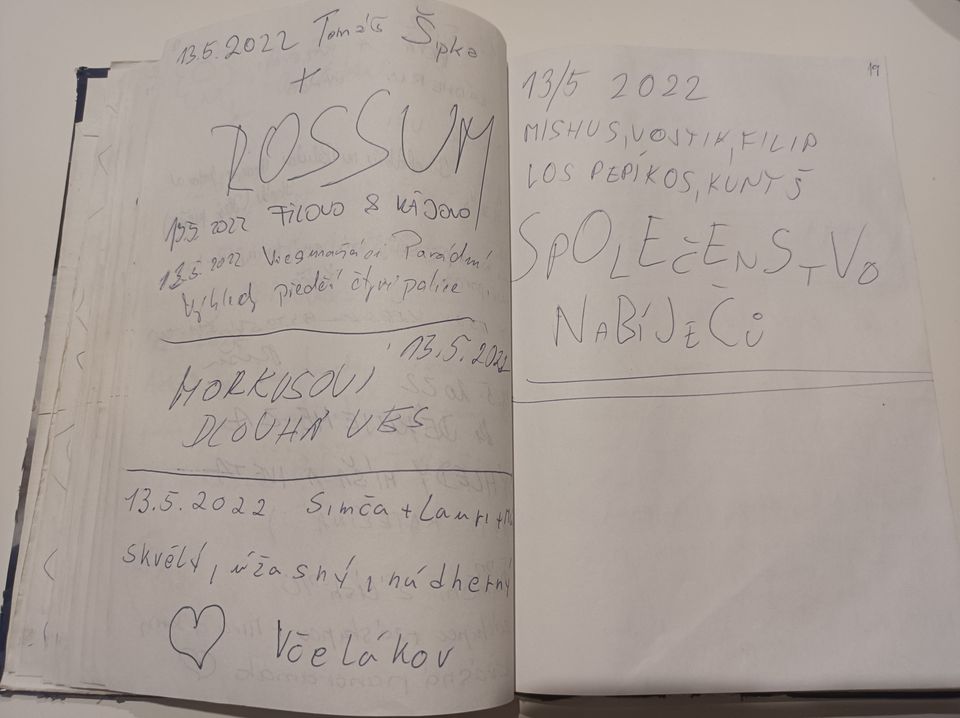 13.5.2022 Tomáš Šipka
+
ROSSUM
13.5 2022 FÍLOVO & KÁJOVO
13.5.2022 Parádní
Výhled předčí čtyři palice
13.5.2022
MORKUSOVI
DLOUHÁ VES
13.5.2022 Simča + Lauri +
skvělý, úžasný, nádherný
Včelákov
19
13/5 2022
MISHUS, VOJTIK, FILIP
LOS PEPÍKOS, KUNTŠ
SPOLEČENSTVO
NABÍJEČŮ